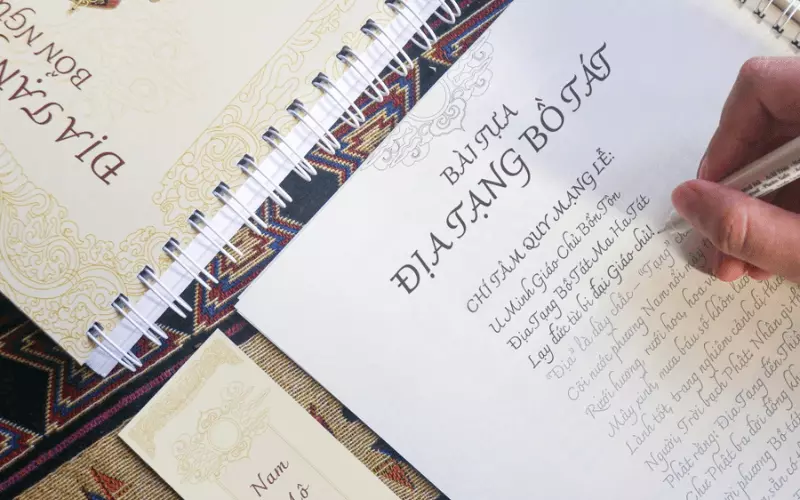 ĐỊA TẠN
BỔN NGU
BÀI TỰA
ĐỊA TẠNG BỒ TÁT
CHÍ TÂM QUY MẠNG LỄ:
U Minh Giáo Chủ Bổn Tôn
Địa Tạng Bồ Tát Ma Ha Tát
Lạy đức từ bi đại Giáo chủ!
"Địa" là dày chắc - "Tạng" ch
Cõi nước phương Nam nổi mây th
Rưới hương, rưới hoa, hoa v
Mây xinh, mưa báu số khôn lư
Lành tốt, trang nghiêm cảnh dị thư
Người, Trời bạch Phật: Nhân gì th
Phật rằng: Địa Tạng đến Thiê
Chư Phật ba đời đồng kh
phương Bồ tá
Nam
ô